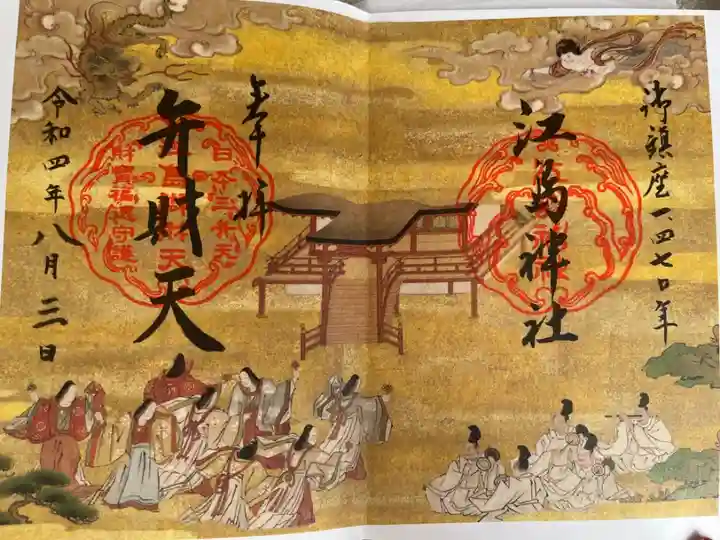 御鎮座一、四七〇年
江島神社
奉拝
弁財天
令和四年八月三日